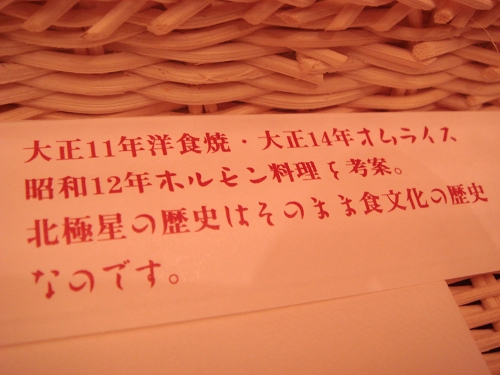 大正11年洋食焼・大正14年オムライス
昭和12年ホルモン料理を考案。
北極星の歴史はそのまま食文化の歴史
なのです。